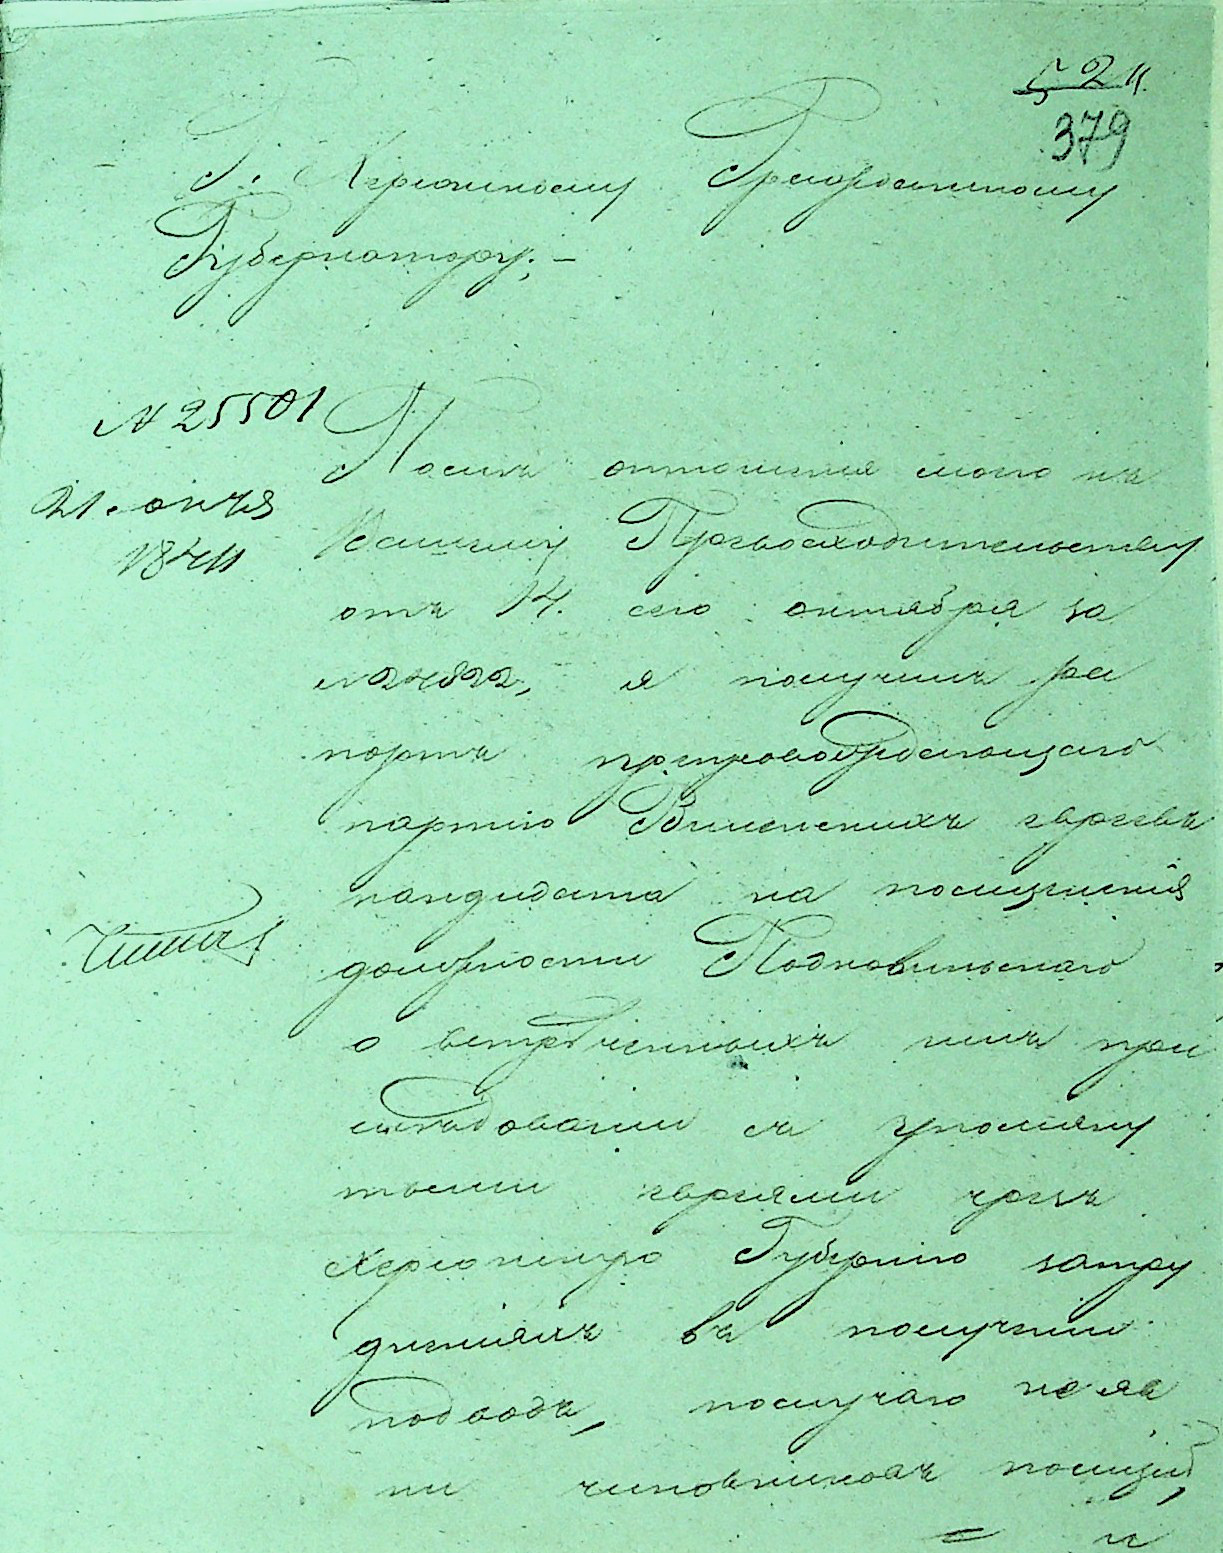 52 II.
379
Г. Херсонскому Гражданскому
Губернатору.–
№ 25501
21. октя
1841
Посли отношения моего къ
Вашему Превосходительству
отъ 14. сего октября за
№ 24822, я получилъ ра
портъ препровождающаго
партію Виленскихъ евреевъ
кандидата на полицейскія
должности
о встреченныхъ имъ при
следованіи съ упомяну
тыми евреями чрезъ
Херсонскую Губернію затру
дненіяхъ въ полученіи
подводъ, по случаю неяв
ки чиновниковъ полиціи,
и